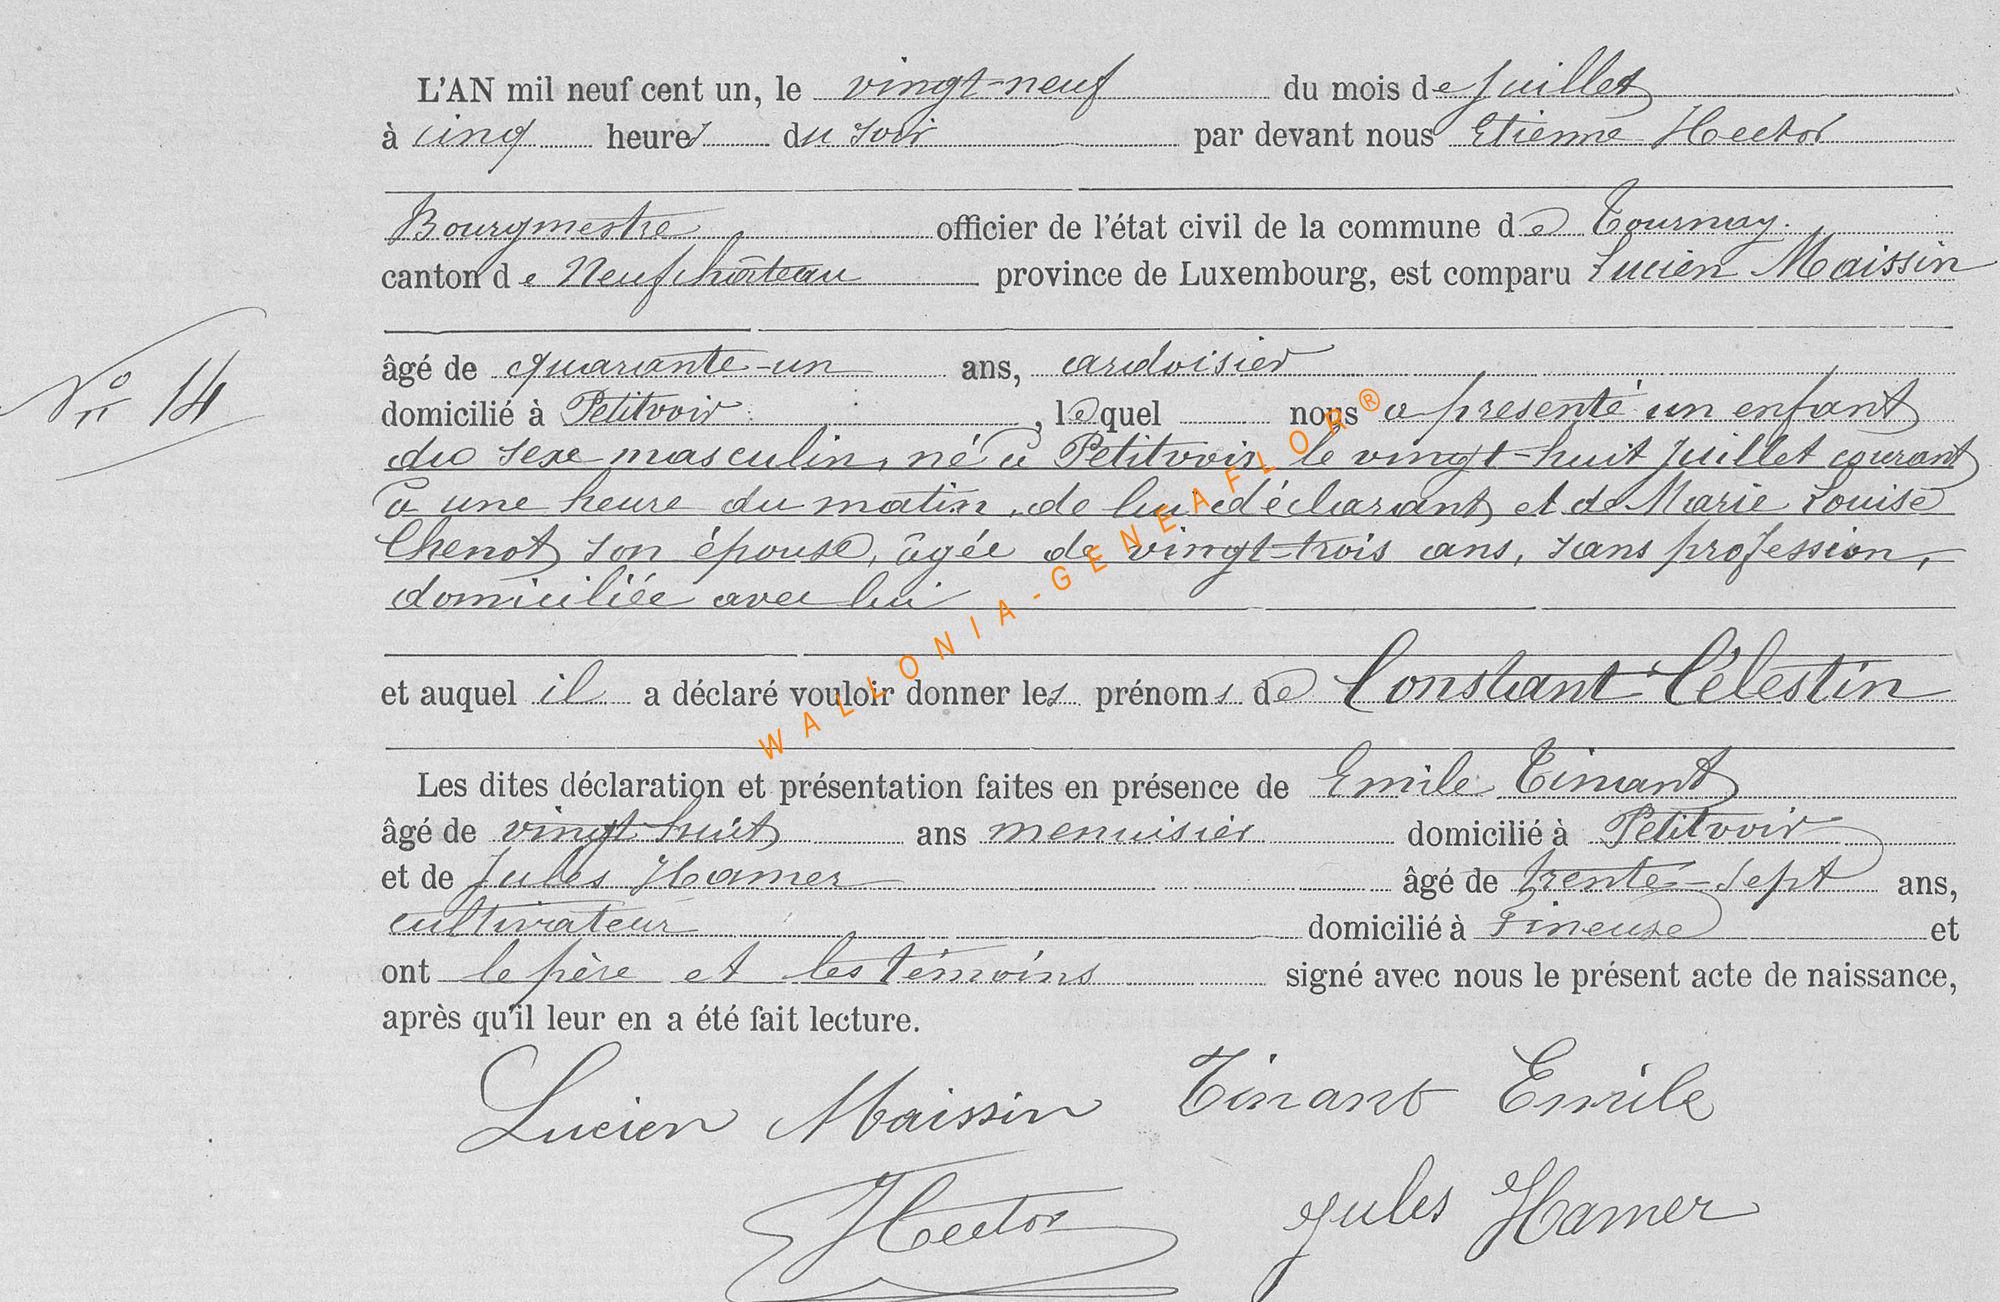 L'AN mil neuf cent un, le vingt-neuf du mois de Juillet
à cinq heures du soir par devant nous Etienne Hector
Bourgmestre officier de l'état civil de la commune de Tournay.
canton de Neufchâteau province de Luxembourg, est comparu Lucien Maissin
N° 14
âgé de quarante-un ans, ardoisier
domicilié à Petitvoir, lequel nous a présenté un enfant
du sexe masculin, né à Petitvoir le vingt-huit Juillet courant
à une heure du matin, de lui déclarant et de Marie Louise
Chenot son épouse, âgée de vingt-trois ans, sans profession,
domiciliée avec lui
et auquel il a déclaré vouloir donner les prénoms de Constant Célestin
Les dites déclaration et présentation faites en présence de Emile Tinant
âgé de vingt-huit ans menuisier domicilié à Petitvoir
et de Jules Hamer âgé de trente-sept ans,
cultivateur domicilié à Fineuse et
ont le père et les témoins signé avec nous le présent acte de naissance,
après qu'il leur en a été fait lecture.
Lucien Maissin Tinant Emile
Hector Jules Hamer
WALLONIA-GENEAFLOR®